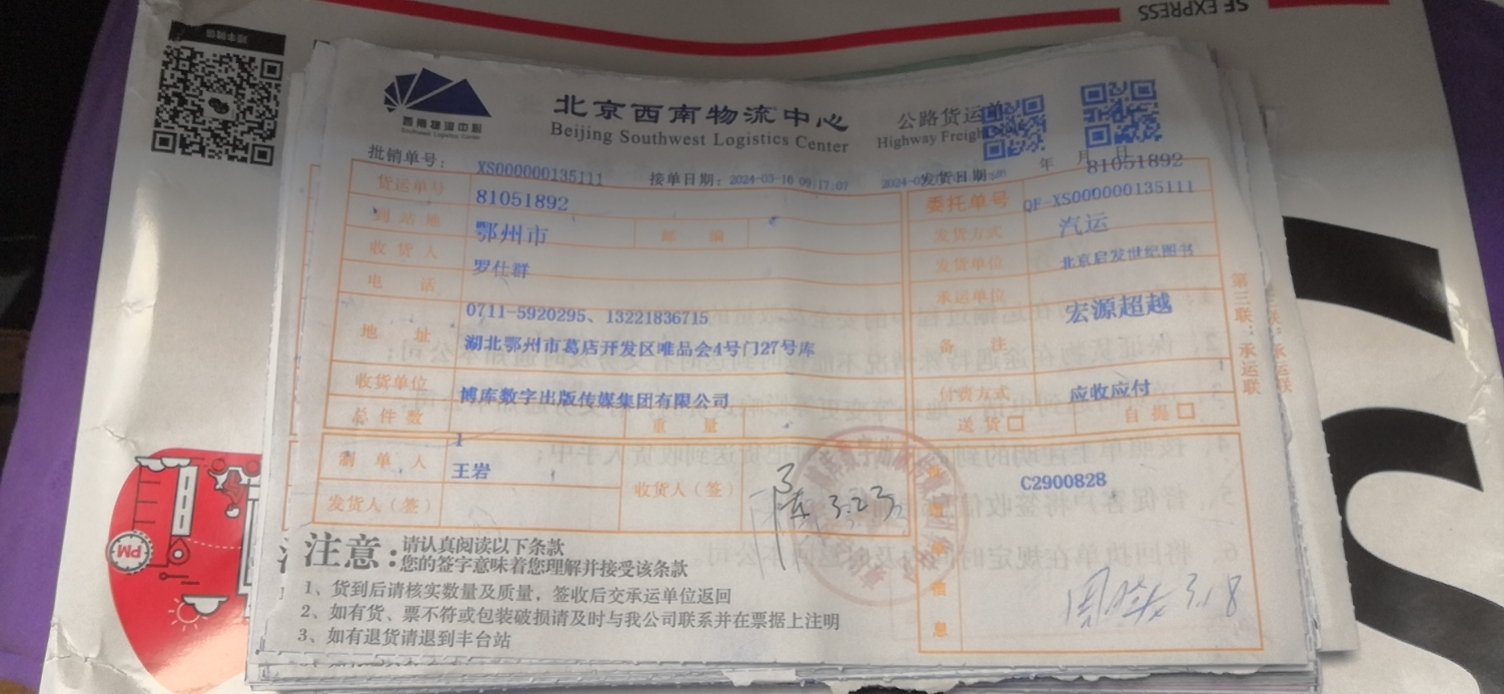 SF EXPRESS
西南物流中心
Southwest Logistics Center
北京西南物流中心
Beijing Southwest Logistics Center
公路货运单
Highway Freight
批销单号: XS000000135111
接单日期: 2024-03-16 09:17:07
发货日期:
年 月 日
81051892
货运单号 81051892
委托单号 QF-XS000000135111
到站地 鄂州市 邮 编
发货方式 汽运
收货人 罗仕群
发货单位 北京启发世纪图书
电 话 0711-5920295、13221836715
承运单位 宏源超越
地 址 湖北鄂州市葛店开发区唯品会4号门27号库
备 注
收货单位 博库数字出版传媒集团有限公司
付费方式 应收应付
总件数 1 重 量
送货□ 自提□
制单人 王岩
收货人(签) 陈 3.23
发货人(签)
C2900828
3.18
息
第三联:承运联
注意:请认真阅读以下条款
您的签字意味着您理解并接受该条款
1、货到后请核实数量及质量,签收后交承运单位返回
2、如有货、票不符或包装破损请及时与我公司联系并在票据上注明
3、如有退货请退到丰台站
PM